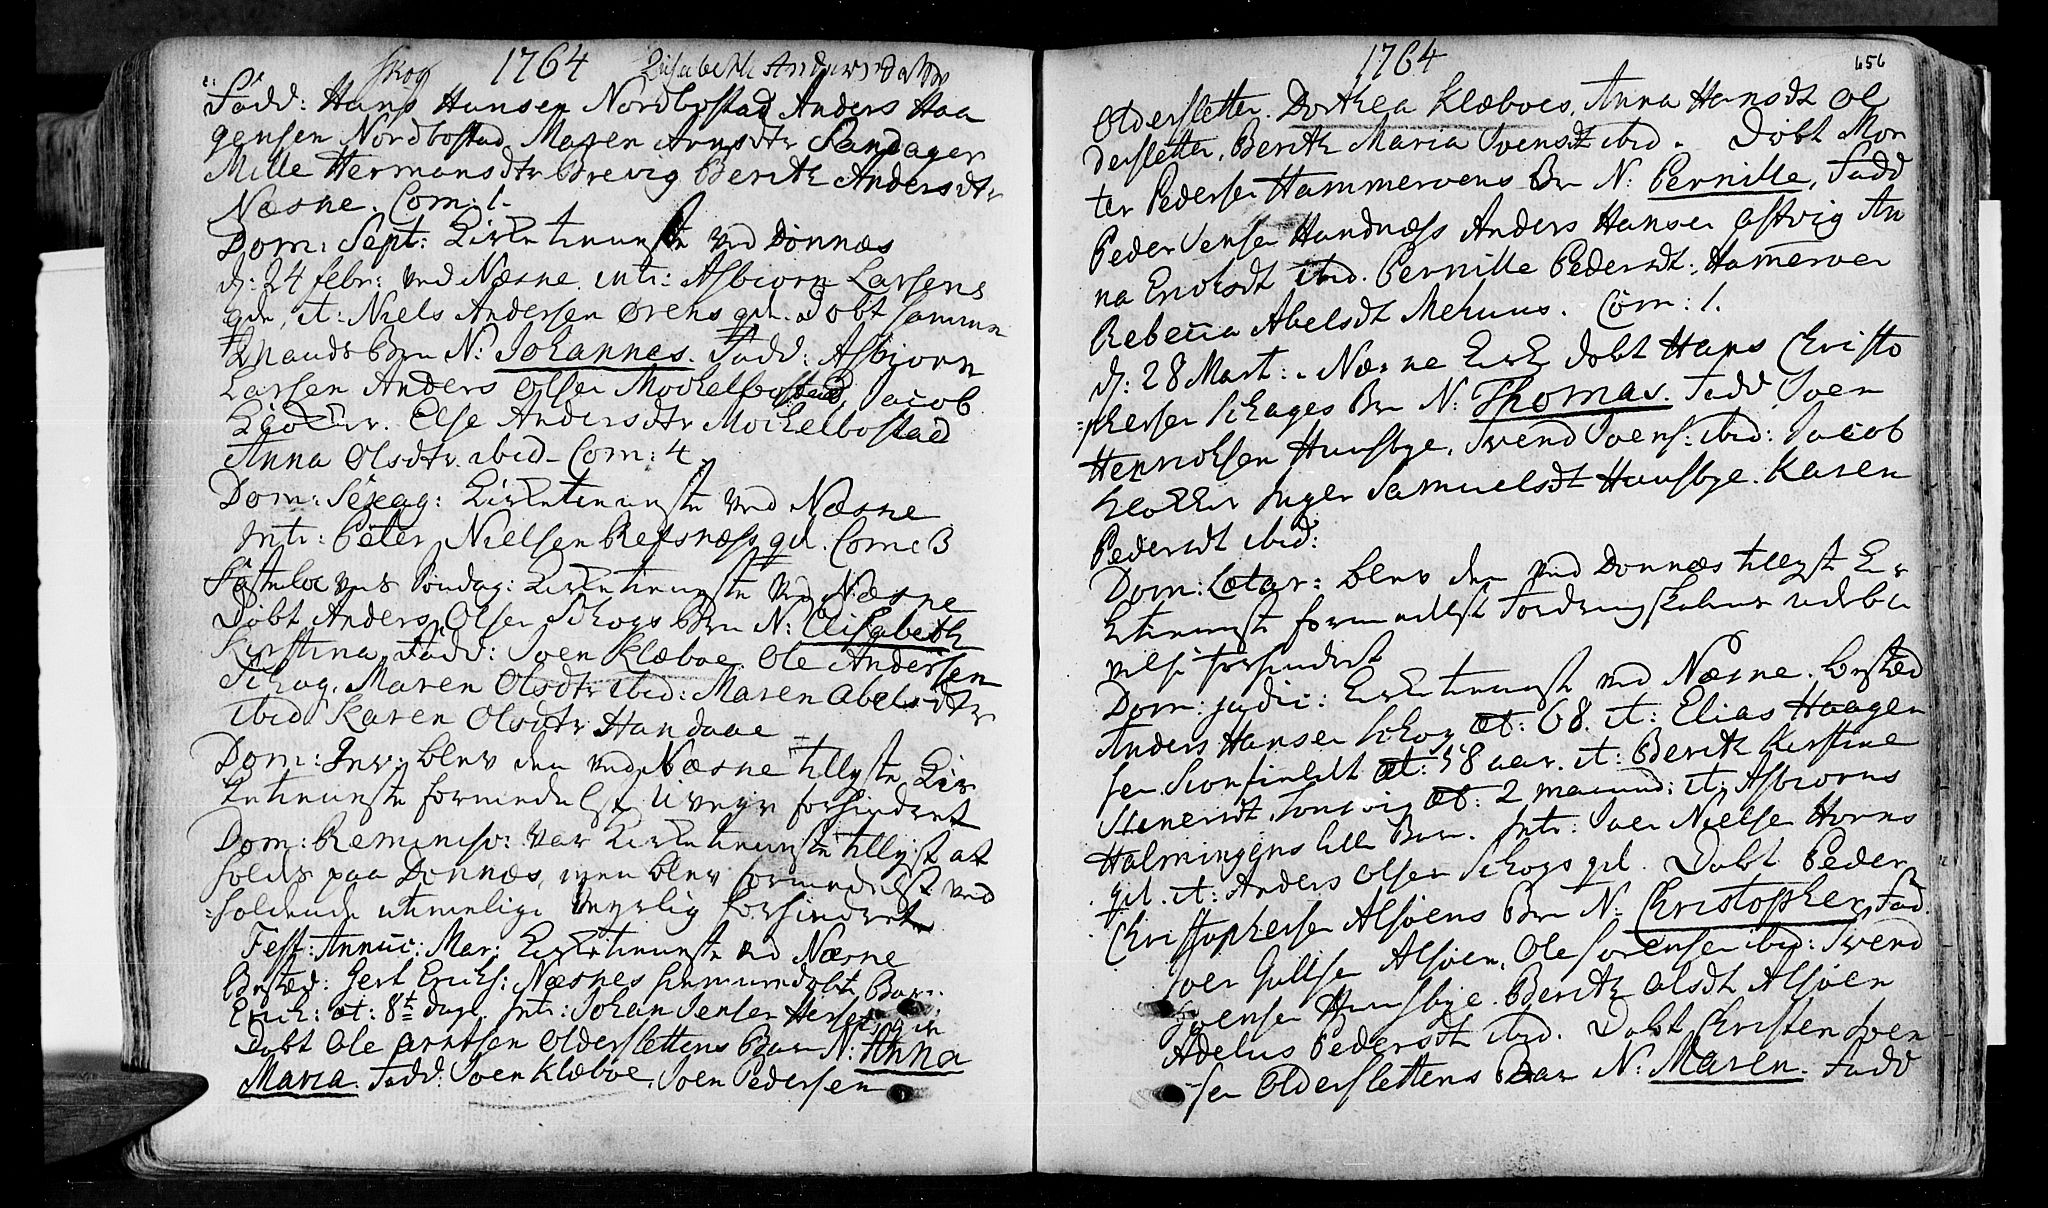 Skog 1764 Elisabeth Andersdatter
Fadd: Hans Hansen Nordbostad Anders Haa
gensen Nordbostad Maren Arnsdtr Sandager
Mille Hermansdtr Brevig Berith Andersdtr
Næsne. Com: 1.
Dom: Sept: Kirketieniste ved Dønnæs
d: 24 febr: ved Næsne. intr: Asbiorn Larsens
qde, it: Niels Andersen Ørens qd. Døbt samme
Mands Barn N: Johannes. Fadd: Asbiorn
Larsen Anders Olsen Mockelbostad, Jacob
Klocker. Else Andersdtr Mockelbostad
Anna Olsdtr. ibid. Com: 4.
Dom: Sexag: Kirketieniste ved Næsne
Intr: Peter Nielsen Refsnæss qd. Com: 3
Fastelavns Søndag: Kirketieniste ved Næsne
Døbt Anders Olsen Schogs Barn N: Elisabeth
Kirstina. Fadd: Iven Klæboe. Ole Andersen
Schog. Maren Olsdtr ibid: Maren Abelsdtr
ibid Karen Olsdtr Handaae
Dom: Inv: blev den ved Næsne tillyste Kir
ketieniste formedelst Uveyr forhindret
Dom: Reminisc: var Kirketieniste tillyst at
holdes paa Dønnæs, men blev formedelst ved
=holdende utienlige Veyrlig forhindret
Fest: Annuc: Mar: Kirketieniste ved Næsne
Bested: Gert Erichs: Næsnes hiemmedøbte Barn
Erich: æt: 8te dage. Intr: Johan Jensen Her
Døbt Ole Arntsen Olderslettens Barn N: Anna
Maria. Fadd: Iven Klæboe, Iven Pedersen
1764 656
Oldersletten. Dorthea Klæboes, Anna Hansdt Ol
dersletten, Berith Maria Ivensdt ibid. Døbt Mor
ten Pedersen Hammerøens Barn N: Pernille, Fadd
Peder Jensen Handnæss Anders Hansen Astvig An
na Enochsdt ibid. Pernille Pedersdt: Hamerøen
Rebecca Abelsdt Mehuus. Com: 1.
d: 28 Mart: Næsne Kirke døbt Hans Christo
=phersen Schages Barn N: Thomas. Fadd, Iven
Henrichsen Huusbye, Svend Ivens: ibid: Jacob
Klocker Inger Samuelsdt Huusbye. Karen
Pedersdt ibid:
Dom: Lætar: blev den ved Dønnæs tillyste Kir
ketieniste formedelst Fordringskabens udebli
velse forhindret
Dom: judic: Kirketieniste ved Næsne. bested
Anders Hansen Schog æt: 68. it: Elias Haagen
sen æt: 58 aar. it: Berith Kirstine
Stenersdt æt: 2 maaned: it: Asbiorns
Halmingens lille Barn. Intr: Iver Nielsen Horns
qd. it: Anders Olsen Schogs qd. Døbt Peder
Christophersen Alsøens Barn N: Christopher, Fad.
Iver Alsøen, Ole Sørensen ibid: Svend
Ivensen Huusbye. Berith Olsdt Alsøen
Adelus Pedersdt ibid. Døbt Christen Iven
=sen Olderslettens Barn N: Maren. Fadd